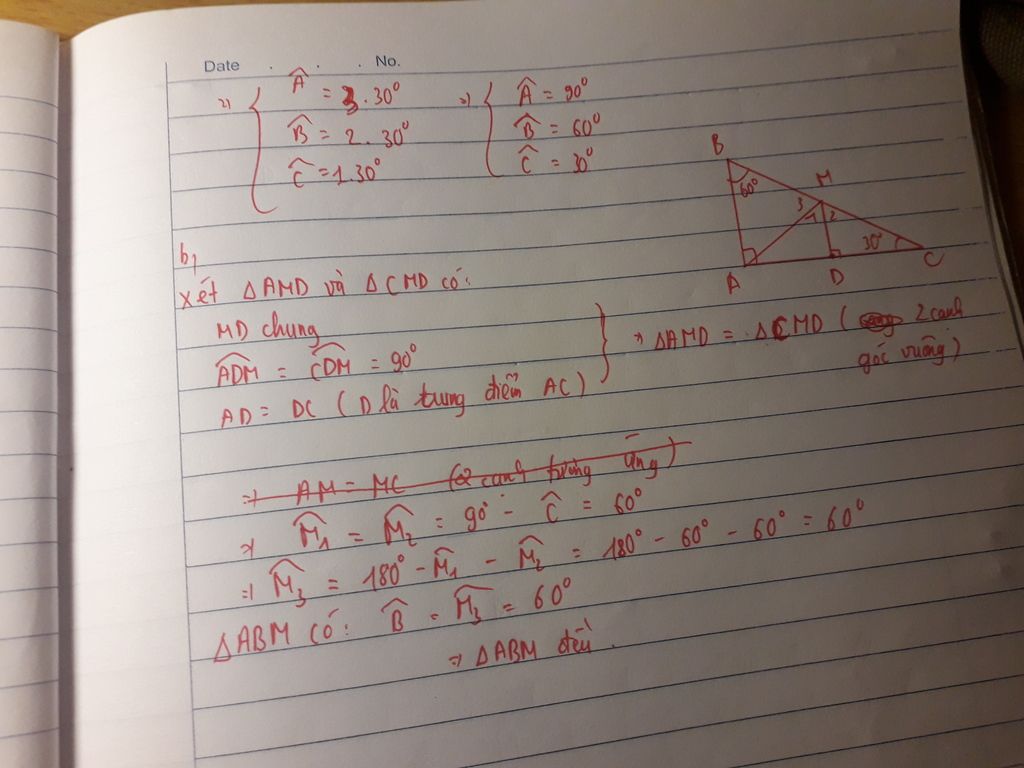 Date . . . No.
=) { Â = 3.30° =) { Â = 90°
B̂ = 2.30° B̂ = 60°
Ĉ = 1.30° Ĉ = 30°
B
60°
M
3 1 2
30°
A D C
b,
Xét ΔAMD và ΔCMD có:
MD chung
ADM = CDM = 90°
AD = DC (D là trung điểm AC)
} =) ΔAMD = ΔCMD ( 2 cạnh
góc vuông)
=) AM = MC (2 cạnh tương ứng)
=) M̂₁ = M̂₂ = 90° - Ĉ = 60°
=) M̂₃ = 180° - M̂₁ - M̂₂ = 180° - 60° - 60° = 60°
ΔABM có: B̂ = M̂₃ = 60°
=) ΔABM đều.